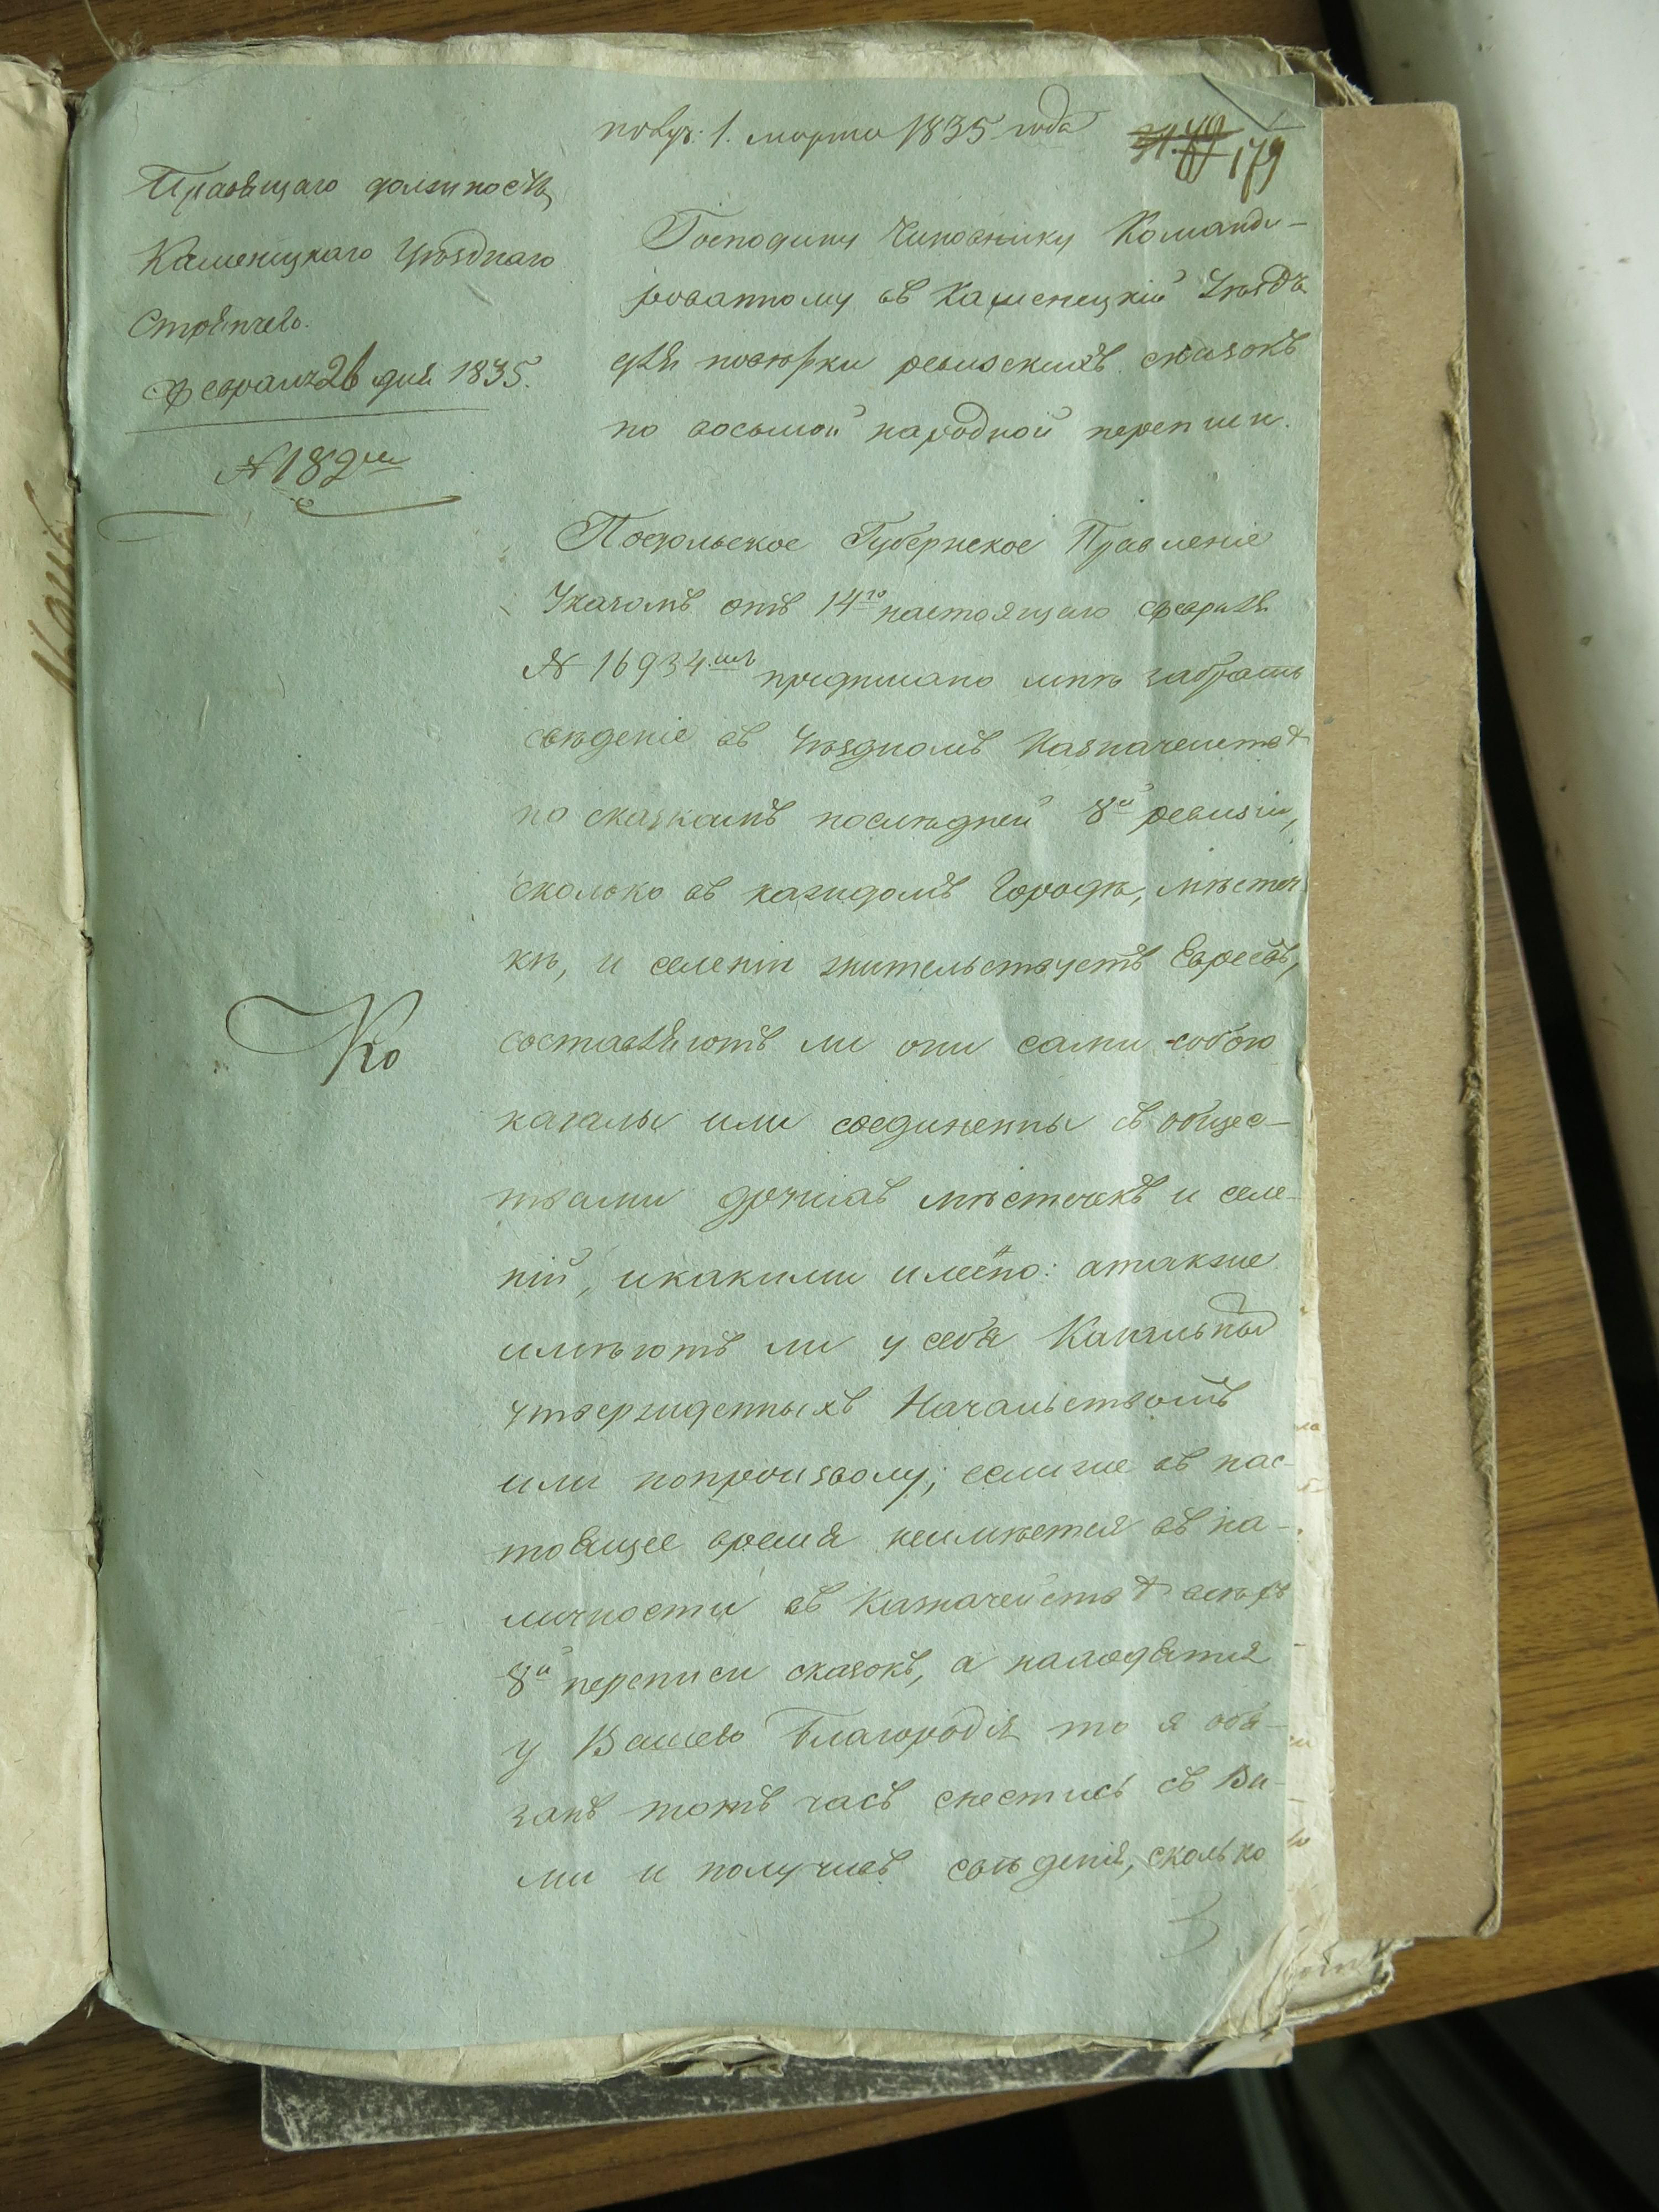 получ: 1. марта 1835 года
179
Правящаго должность
Каменецкаго Уѣзднаго
Стряпчего.
Февраля 26 дня 1835.
№ 182й
Ко
Господину Чиновнику Команди-
рованному въ Каменецкій Уѣздъ
для повѣрки ревизскихъ сказокъ
по восьмой народной переписи.
Подольское Губернское Правленіе
Указомъ отъ 14го настоящаго февраля
№ 16934мъ предписано мнѣ забрать
свѣденіе въ Уѣздномъ Казначействѣ
по сказкамъ послѣдней 8й ревизіи,
сколько въ каждомъ Городѣ, мѣстеч
кѣ, и селеніи жительствуетъ Евреевъ,
составляютъ ли они сами собою
кагалы или соединенны съ общес-
твами другихъ мѣстечекъ и селе-
ній, икакими имянно: атакже
имѣютъ ли у себя Кагальныхъ
утвержденныхъ Начальствомъ
или попроизволу; еслиже въ нас-
тоящее время неимѣется въ на-
личности въ Казначействѣ всѣхъ
8й переписи сказокъ, а находятся
у Вашего Благородія то я обя-
занъ тотъ часъ снестись съ Ва-
ми и получивъ свѣденія, сколько